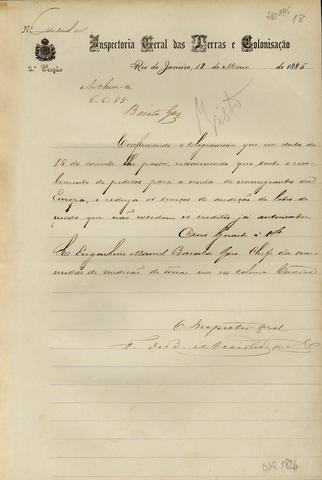 480895 18
Nº Circular
Inspectoria Geral das Terras e Colonisação
2.ª Secção
Rio de Janeiro, 18 de Maio de 1885
Archive-se
6-6-85
Barata Góes
Visto
Confirmando o telegramma que em data de
15 do corrente lhe passei, recommendo que suste o
de pedidos para a vinda de immigrantes da
Europa, e reduza os serviços de medição de lotes, de
modo que não excedam os creditos já autorisados.
Deus Guarde á
Sr. Engenheiro Manoel Barata Góes, Chefe da com-
missão de medição de terras na ex colonia Caxias
O Inspector Geral
F. de B.
DIR 1826